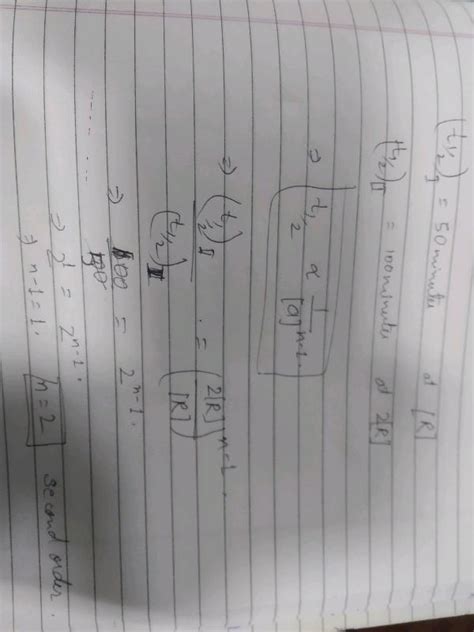 (t1/2)I = 50 minutes at [R]
(t1/2)II = 100 minutes at 2[R]
⇒ t1/2 ∝ 1/[a]^n-1.
⇒ (t1/2)II / (t1/2)I = (2[R]/[R])^n-1.
⇒ 100/50 = 2^n-1.
⇒ 2^1 = 2^n-1.
⇒ n-1 = 1. n=2 second order.